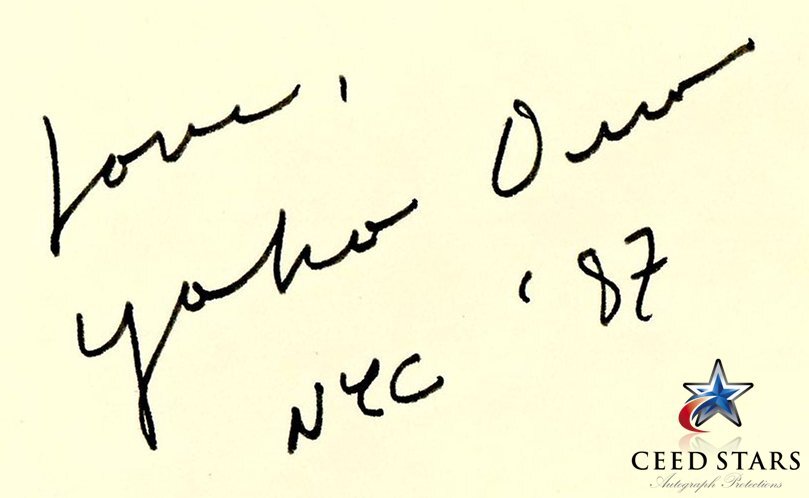 Love,
Yoko Ono
NYC '87
CEED STARS
Autograph Protections